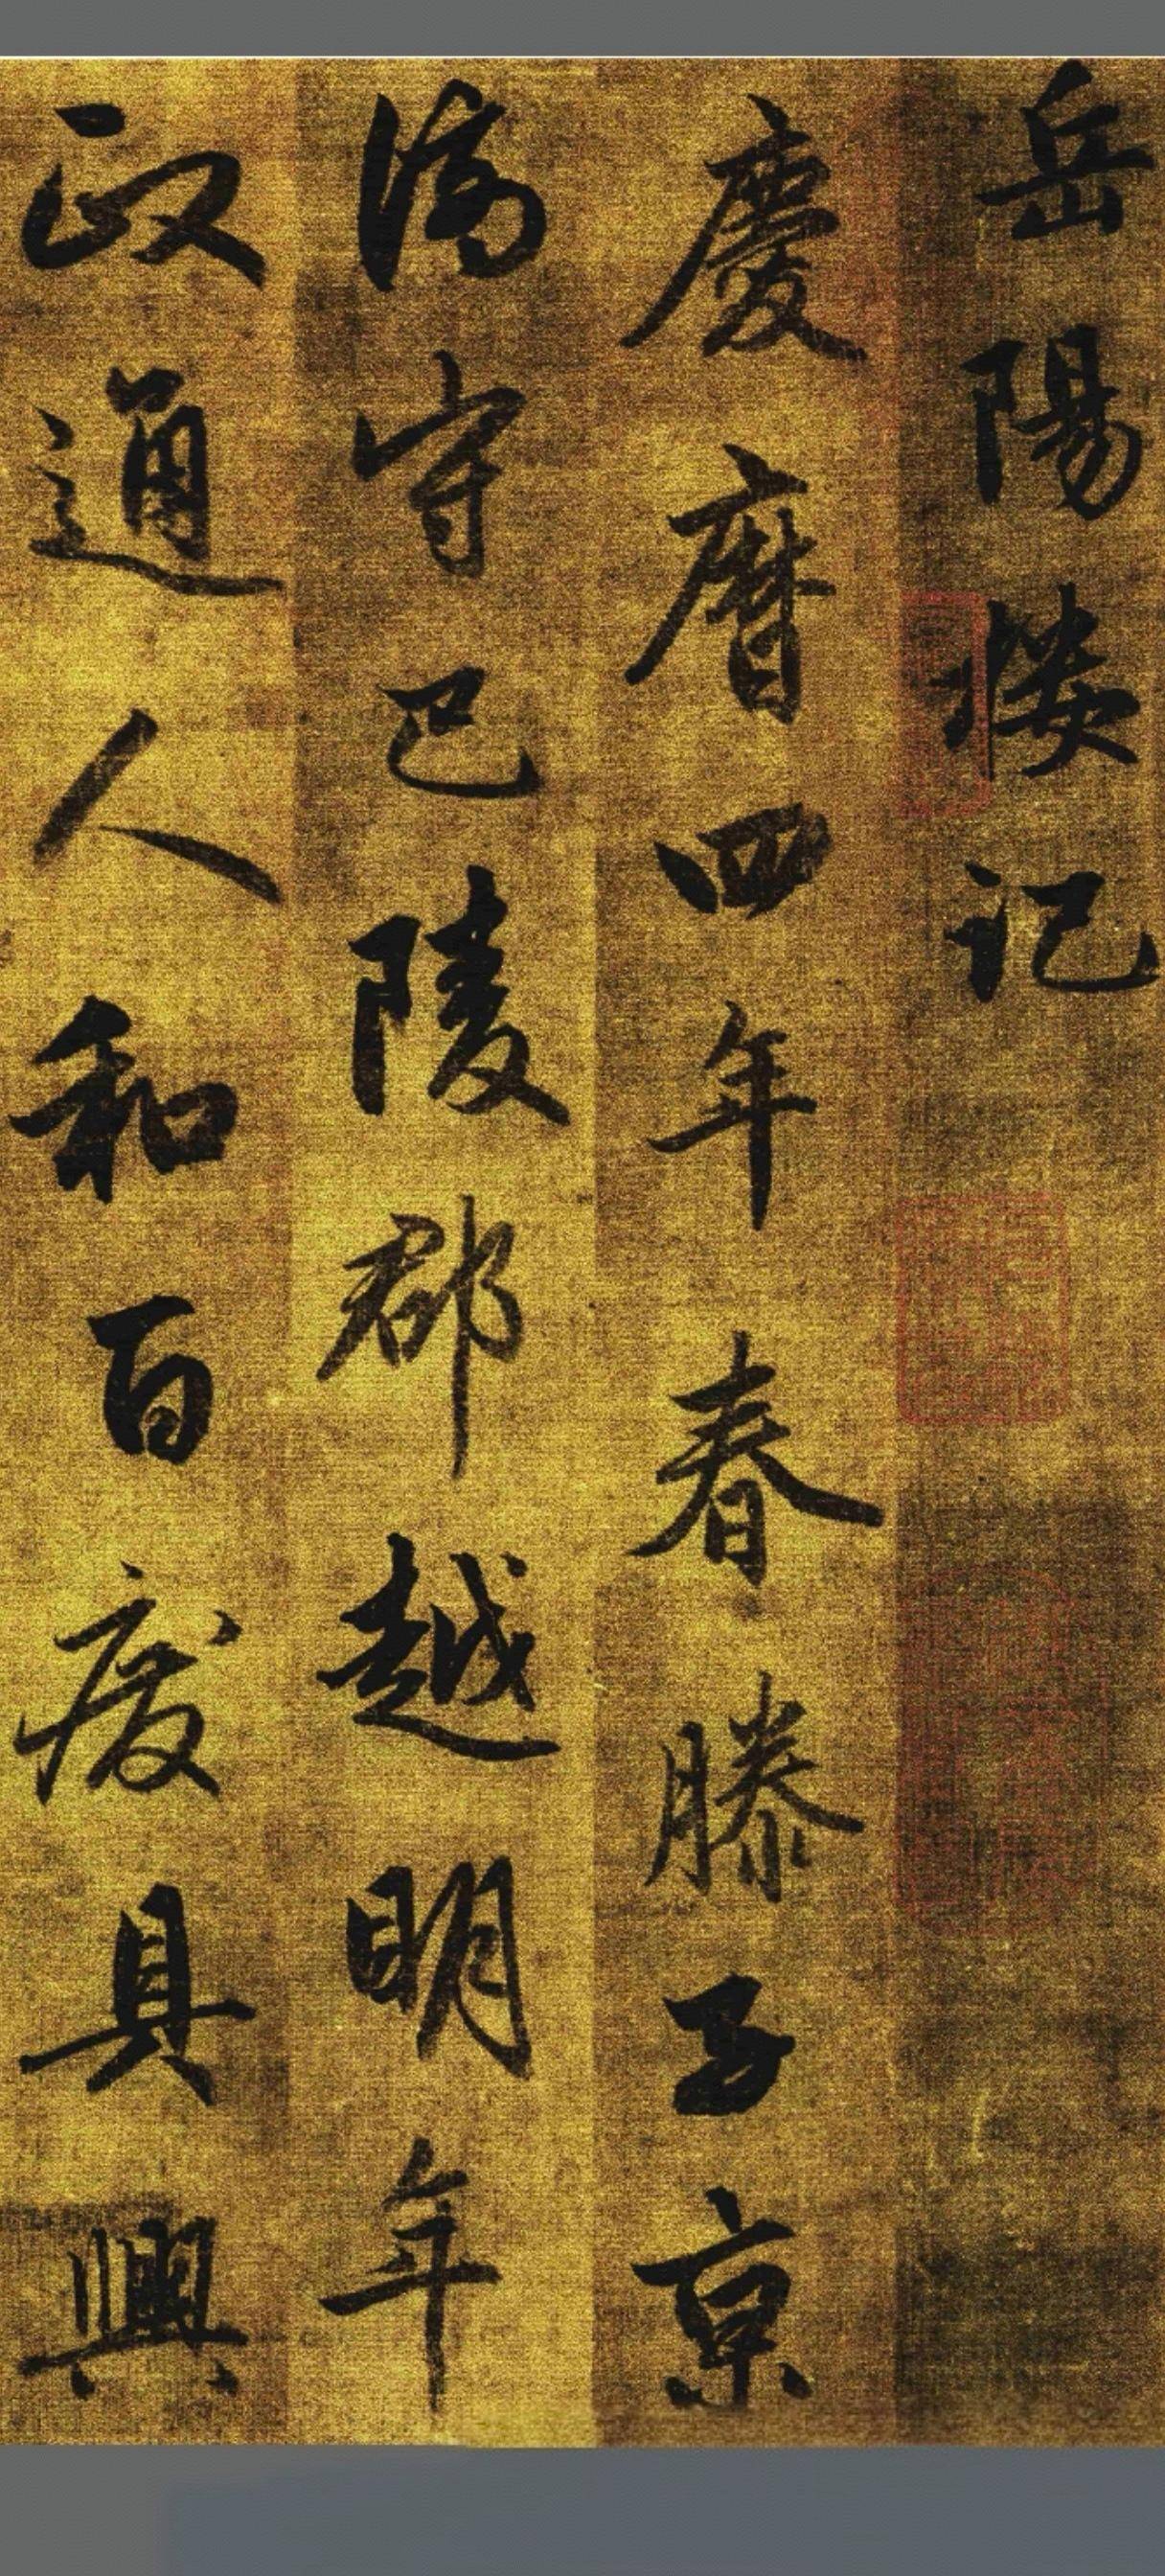 岳陽樓记
慶曆四年春滕子京
謫守巴陵郡越明年
政通人和百废具興